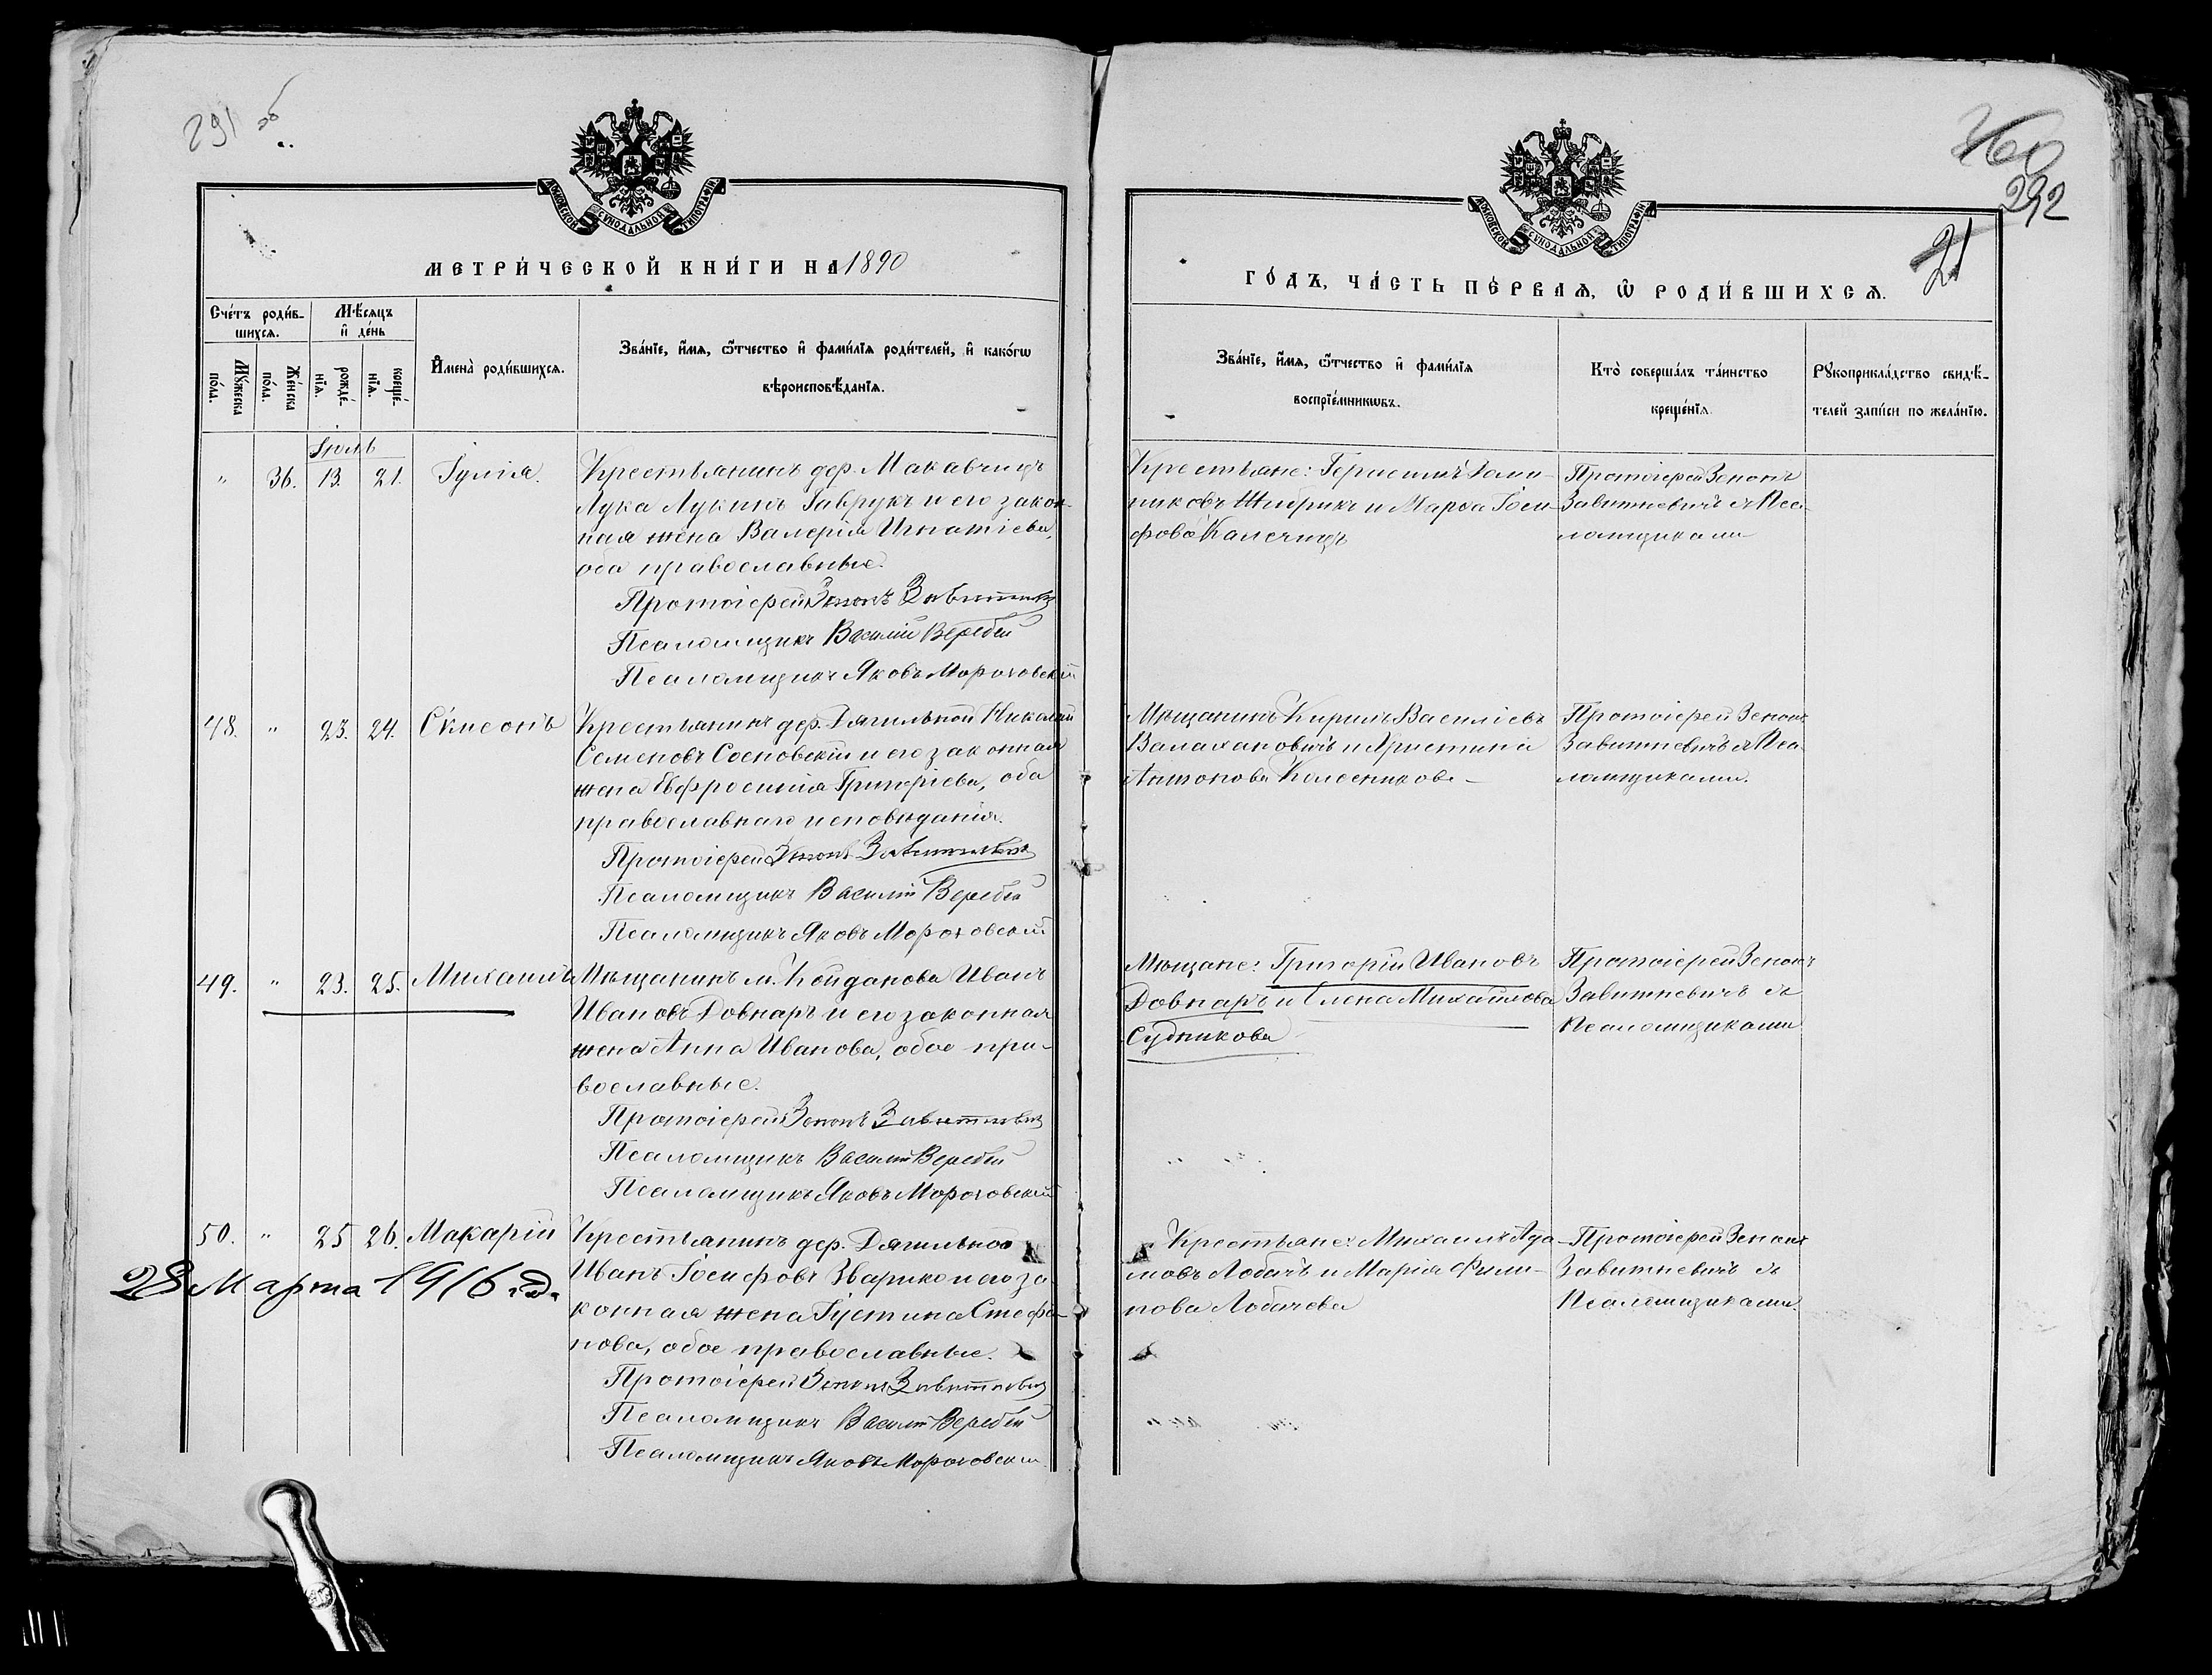 291 об
МОСКОВСКОЙ СѴНОДАЛЬНОЙ ТИПОГРАФІИ
МЕТРИ́ЧЕСКОЙ КНИ́ГИ НА 1890
Сче́тъ роди́в-
шихся.
Мѣ́сяцъ
и҆ де́нь
Мꙋ́жеска
по́ла.
Же́нска
по́ла.
рожде́-
нїѧ.
креще́-
нїѧ.
И҆мена̀ роди́вшихсѧ.
Зва́нїе, и҆́мѧ, ѻ҆́тчество и҆ фами́лїѧ роди́телей, и҆ како́гѡ
вѣроисповѣ́данїѧ.
Іюль
" 36. 13. 21. Іулія.
Крестьянинъ дер. Макавчицъ
Лука Лукинъ Гаврукъ и его закон-
ная жена Валерія Игнатіева,
оба православные.
Протоіерей Зенонъ Завитневичъ
Псаломщикъ Василій Веребей
Псаломщикъ Яковъ Мороховскій
48. " 23. 24. Сѵмеонъ
Крестьянинъ дер. Дягильной Николай
Семеновъ Сосновскій и его законная
жена Евфросинія Григоріева, оба
православнаго исповѣданія.
Протоіерей Зенонъ Завитневичъ
Псаломщикъ Василій Веребей
Псаломщикъ Яковъ Мороховскій
49. " 23. 25. Михаилъ
Мѣщанинъ м. Койданова Иванъ
Ивановъ Довнаръ и его законная
жена Анна Иванова, обое пра-
вославные.
Протоіерей Зенонъ Завитневичъ
Псаломщикъ Василій Веребей
Псаломщикъ Яковъ Мороховскій
50. " 25 26. Макарій
28 Марта 1916 г.
Крестьянинъ дер. Дягильной
Иванъ Іосифовъ Зварико и его за-
конная жена Іустина Стефа-
нова, обое православные.
Протоіерей Зенонъ Завитневичъ
Псаломщикъ Василій Веребей
Псаломщикъ Яковъ Мороховскій
292
21
МОСКОВСКОЙ СѴНОДАЛЬНОЙ ТИПОГРАФІИ
ГО́ДЪ, ЧА́СТЬ ПЕ́РВАѦ, Ѡ҆ РОДИ́ВШИХСѦ.
Зва́нїе, и҆́мѧ, ѻ҆́тчество и҆ фами́лїѧ
воспрїе́мникѡвъ.
Кто̀ соверша́лъ та́инство
креще́нїѧ.
Рꙋкоприкла́дство свидѣ́-
телей за́писи по жела́нїю.
Крестьяне:
и Марѳа Іоси-
фова
Протоіерей Зенонъ
Завитневичъ съ Пса-
ломщиками
Мѣщанинъ Кирилъ Василіевъ
Валахановичъ и Христина
Антонова Колесникова
Протоіерей Зенонъ
Завитневичъ съ Пса-
ломщиками.
Мѣщане: Григорій Ивановъ
Довнаръ и Елена Михайлова
Судникова
Протоіерей Зенонъ
Завитневичъ съ
Псаломщиками
Крестьяне: Михаилъ Ада-
мовъ Лобачъ и Марія Фили-
пова Лобачева
Протоіерей Зенонъ
Завитневичъ съ
Псаломщиками.